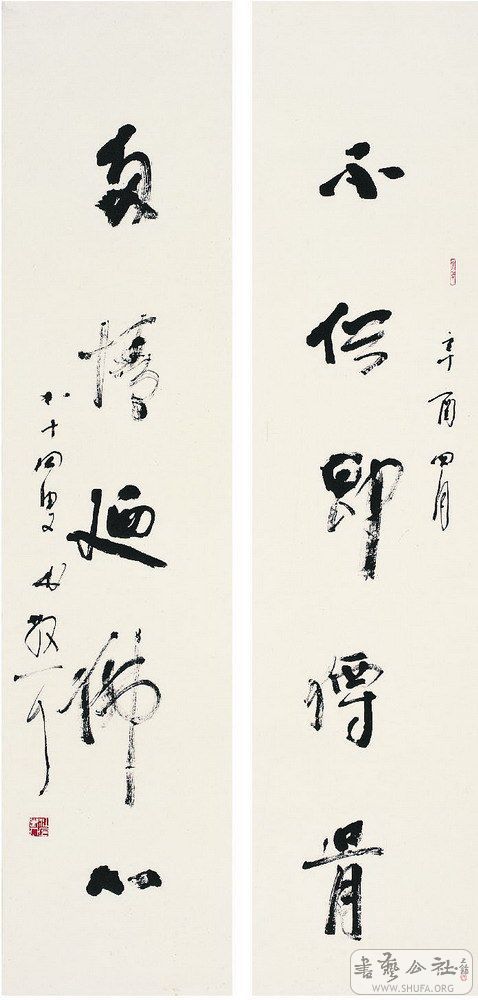 辛酉四月
不俗即僊骨
多情廼佛心
八十四叟林散耳
書藝公社
WWW.SHUFA.ORG